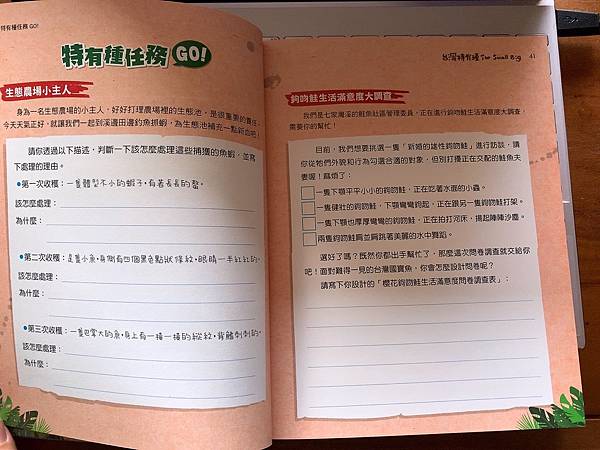 特有種任務 GO!
特有種任務 GO!
生態農場小主人
身為一名生態農場的小主人,好好打理農場裡的生態池,是很重要的責任。
今天天氣正好,就讓我們一起到溪邊田邊釣魚抓蝦,為生態池補充一點新血吧!
請你透過以下描述,判斷一下該怎麼處理這些捕獲的魚蝦,並寫
下處理的理由。
●第一次收穫:一隻體型不小的蝦子,有著長長的螯。
該怎麼處理:
為什麼:
●第二次收穫:是隻小魚,身側有四個黑色點狀條紋,眼睛一半紅紅的。
該怎麼處理:
為什麼:
●第三次收穫:一隻巴掌大的魚,身上有一條一條的縱紋,背鰭刺刺的。
該怎麼處理:
為什麼:
台灣特有種 The Small Big
41
鉤吻鮭生活滿意度大調查
我們是七家灣溪的鮭魚社區管理委員,正在進行鉤吻鮭生活滿意度大調查
需要你的幫忙!
目前,我們想要挑選一隻「新婚的雄性鉤吻鮭」進行訪談,請
你從牠們外貌和行為勾選合適的對象,但別打擾正在交配的鮭魚夫
妻喔!麻煩了:
一隻下顎平平小小的鉤吻鮭,正在吃著水面的小蟲。
一隻健壯的鉤吻鮭,下顎彎彎鉤起,正在跟另一隻鉤吻鮭打架。
一隻下顎也厚厚彎彎的鉤吻鮭,正在拍打河床,揚起陣陣沙塵。
兩隻鉤吻鮭肩並肩跳著美麗的水中舞蹈。
選好了嗎?既然你都出手幫忙了,那麼這次問卷調查就交給你
吧!面對難得一見的台灣國寶魚,你會怎麼設計問卷呢?
請寫下你設計的「櫻花鉤吻鮭生活滿意度問卷調查表」: